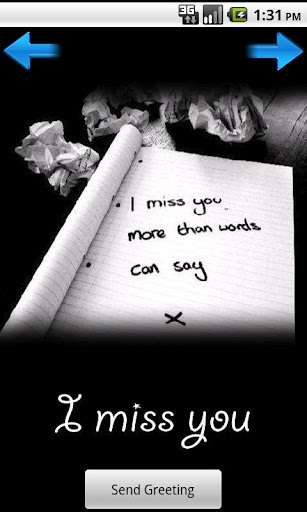 3G 1:31 PM
I miss you
more than words
can say
x
I miss you
Send Greeting